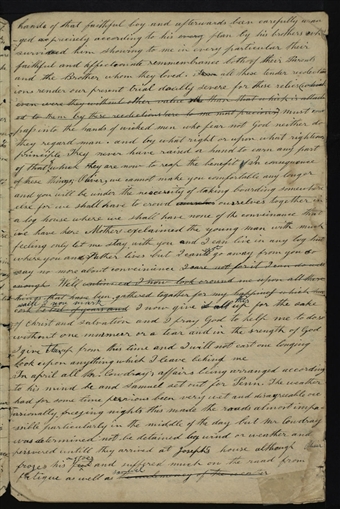 hands of that faithful boy and afterwards been carefully mana
ged so precisely according to his every plan by his brothers who
survived him showing to me in every particular their
faithful and affectionate remembrance both of their Parents
and the Brother whom they loved. all these tender recollect
ions render our present trial doubly severe for these relics
even were they without other value than that which is attach
ed to them by these recollections are to me most precious must now
pass into the hands of wicked men who fear not God neither do
they regard man. and by what right or upon what righteous
principle they never have raised a hand to earn any part
of that which they are now to reap the benefit of in consequence
of these things Oliver, we cannot make you comfortable any longer
and you will be under the necessity of taking boarding somewhere
else for we shall have to crowd ourselves together in
a log house where we shall have none of the convenience that
we have here Mother exclaimed the young man with much
feeling only let me stay with you and I can live in any log hut
where you and father live but I cannot go away from you do
say no more about convenience
enough Well I now look around me upon all these
things that have been gathered together for my happiness which
cost years and I now give it all up for the sake
of Christ and salvation and I pray God to help me to do so
without one murmur or a tear and in the strength of God
I give it up from this time and I will not cast one longing
look upon anything which I leave behind me
In april all Mr Cowdray's affairs being arranged according
to his mind he and Samuel set out for Tenn. The weather
had for some time previous been very wet and disagreeable occ
asionally freezing nights this made the roads almost impas
sible particularly in the middle of the day but Mr Cowdray
was determined not be detained by wind or weather and
persevered untill they arrived at Joseph's house although
frozes his feet and suffered much on the road from
fatigue as well as